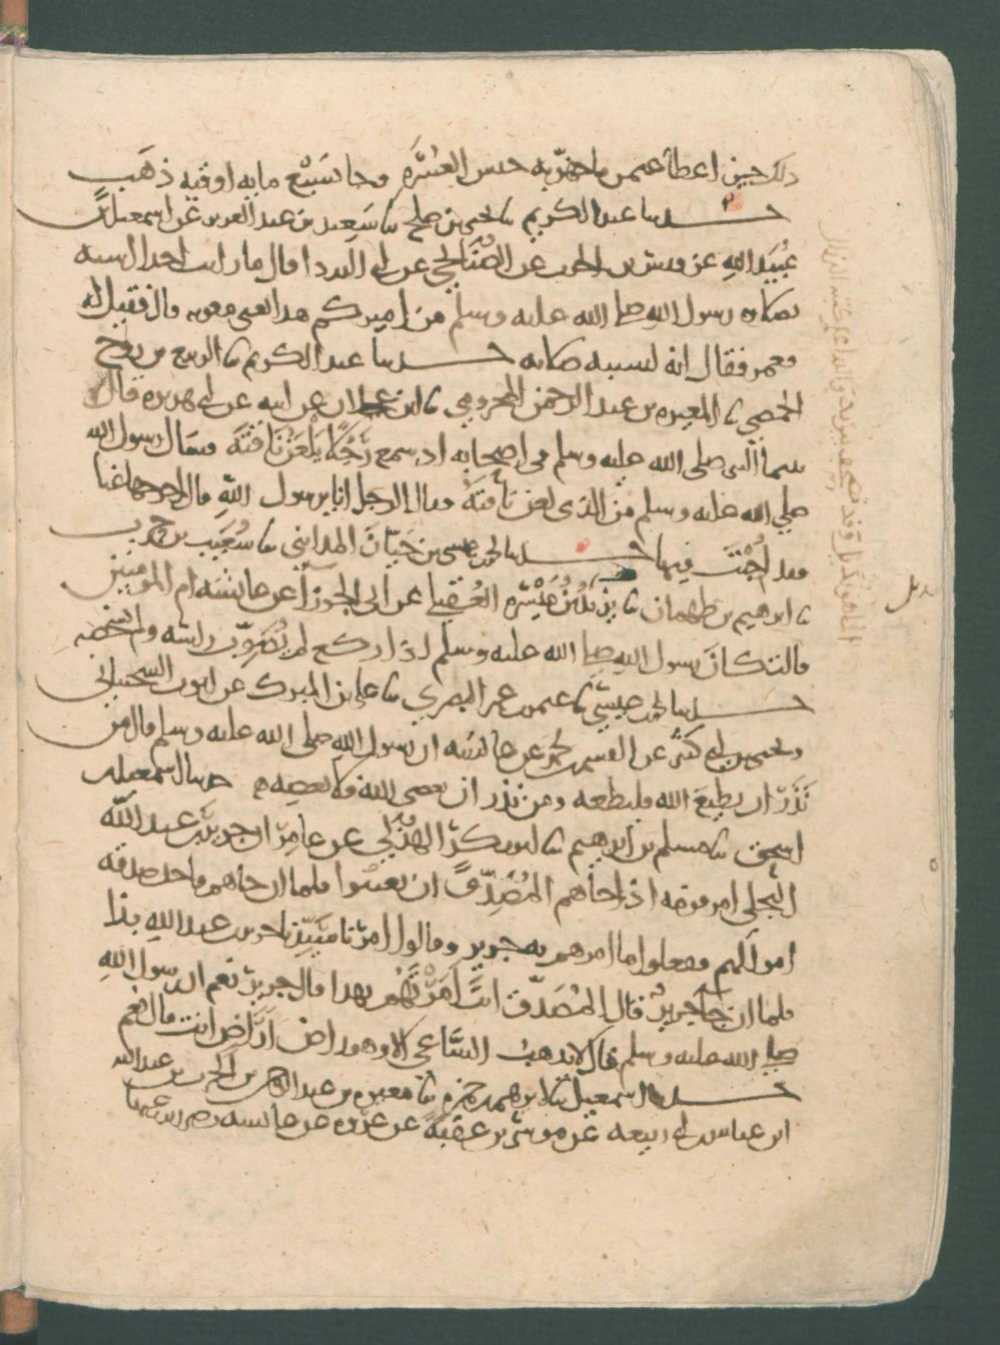 ذلك حين اعطا عثمن ما جهز به جيش العسرة وجا بسبع مايه اوقيه ذهب
حدثنا عبد الكريم ثنا يحيى بن صلح ثنا سعيد بن عبد العزيز عن اسمعيل بن
عبيد الله عن قيس بن الحرث عن الصنابحي عن ابي الدردا قال ما رايت احدا اشبه
صلاه برسول الله صلى الله عليه وسلم من اميركم هذا يعني معويه قال فقيل له
فعمر فقال انه ليشبه صلاته حدثنا عبد الكريم ثنا الربيع بن روح
الحمصي ثنا المغيره بن عبد الرحمن المخزومي ثنا ابن عجلان عن ابيه عن ابي هريره قال
بينما النبي صلى الله عليه وسلم في اصحابه اذ سمع رجلا يلعن ناقته فقال رسول الله
صلى الله عليه وسلم من الذي لعن ناقته فقال الرجل انا يرسول الله قال اخرجها عنا
فقد اجبت فيها حدثنا محمد بن عيسى بن حيان المدايني ثنا شعيب بن حرب
ثنا ابرهيم بن طهمان ثنا بديل بن ميسره العقيلي عن ابي الجوزا عن عايشه ام المومنين
قالت كان رسول الله صلى الله عليه وسلم اذا ركع لم يصوب راسه ولم يشخصه
حدثنا محمد بن عيسى ثنا عثمن بن عمر البصري ثنا علي بن المبرك عن ايوب السختياني
ويحيى بن ابي كثير عن القسم بن محمد عن عايشه ان رسول الله صلى الله عليه وسلم قال من
نذر ان يطيع الله فليطعه ومن نذر ان يعصي الله فلا يعصه حدثنا اسمعيل بن
اسحق ثنا مسلم بن ابرهيم ثنا ابو بكر الهذلي عن عامر ان جرير بن عبد الله
البجلي امر قومه اذا جاهم المصدق ان يعينوا فلما ان جاهم فاخذ صدقه
اموالهم ففعلوا ما امرهم به جرير وقالوا امرنا سيدنا جرير بن عبد الله بذا
فلما ان جا جرير قال المصدق انت امرتهم بهذا قال جرير نعم ان رسول الله
صلى الله عليه وسلم قال لا يذهب الساعي الا وهو راض اراض انت قال نعم
حدثنا اسمعيل ثنا ابرهيم بن حمزه ثنا مغيره بن عبد الرحمن بن الحرث بن عبد الله
ابن عياش بن ابي ربيعه عن موسى بن عقبه عن عروه عن عايشه رضي الله عنها
بديل